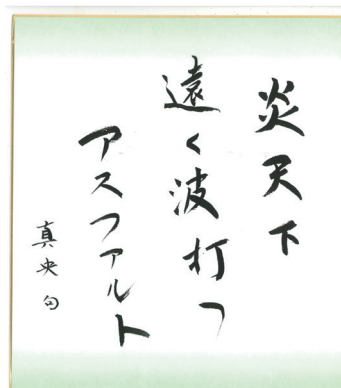 炎天下
遠く波打つ
アスファルト
真央句